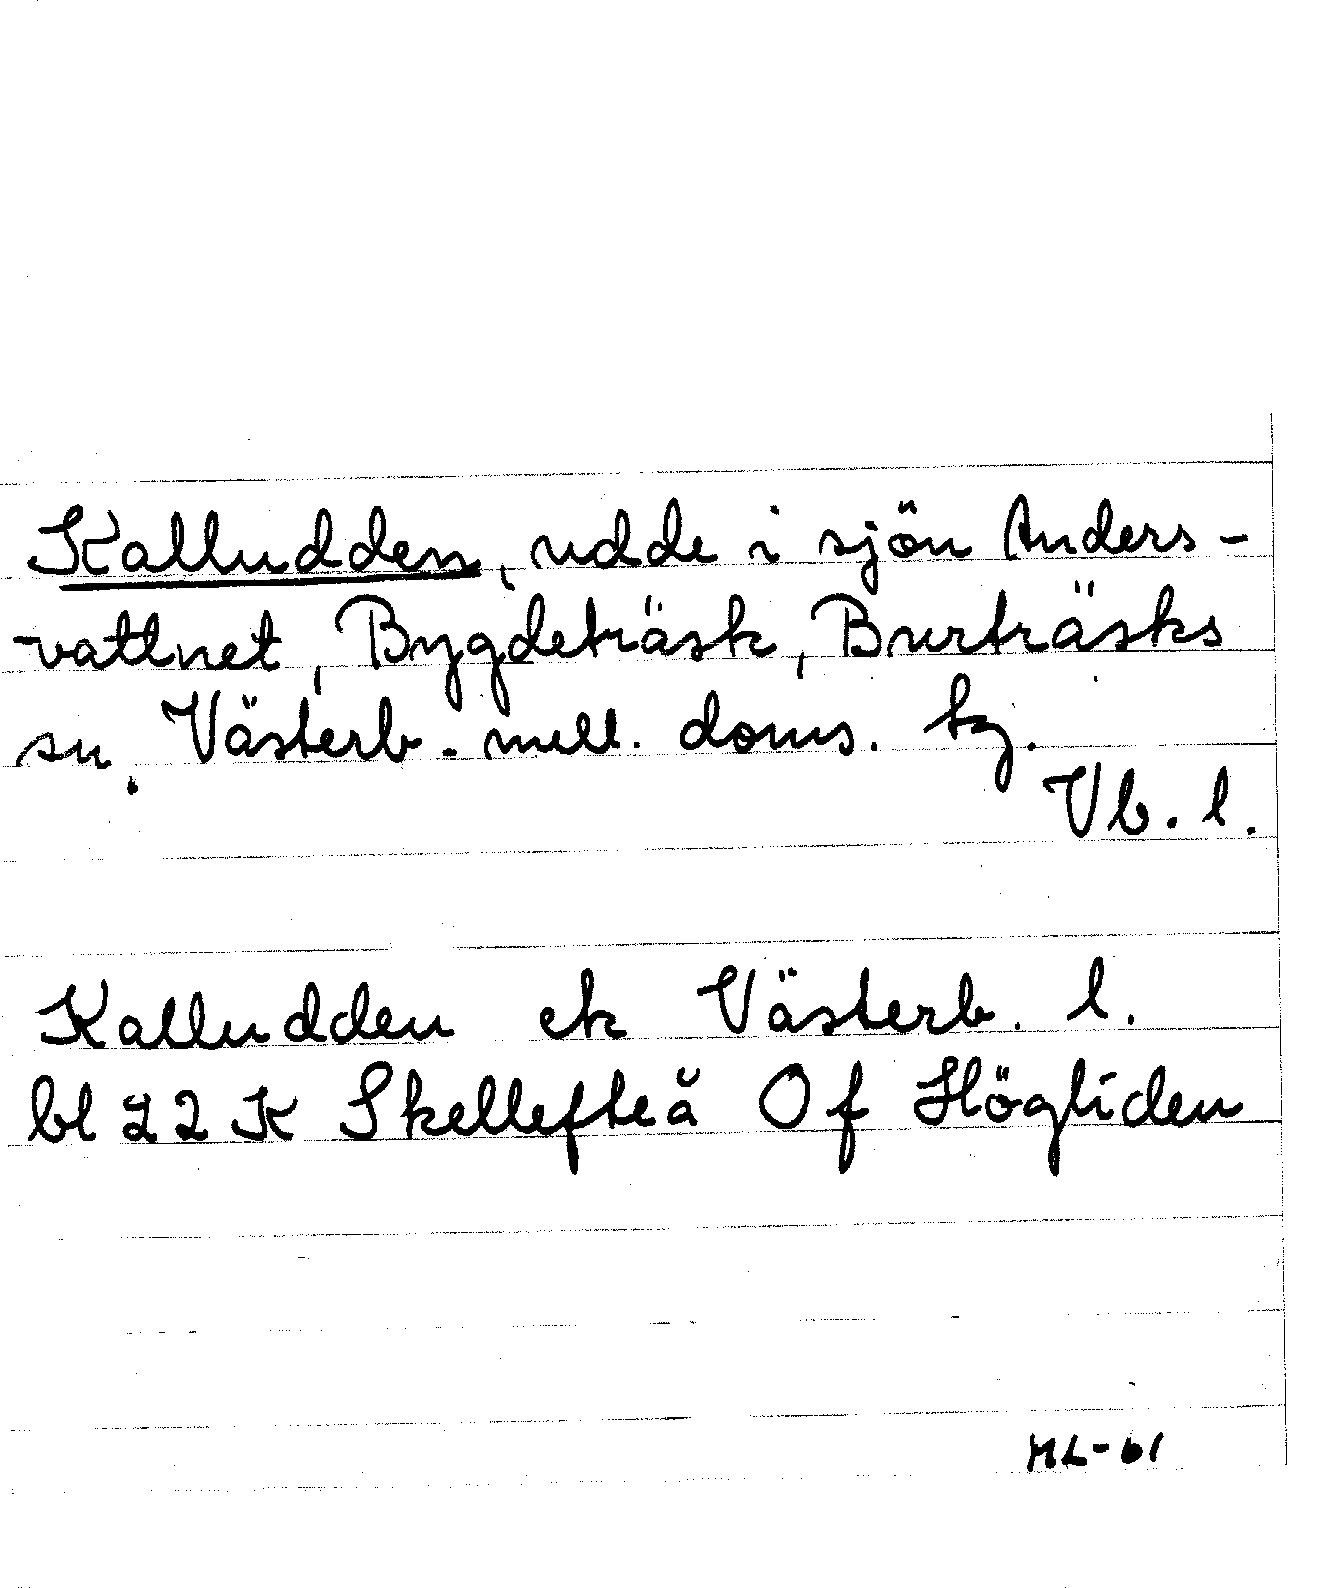 Kalludden, udde i sjön Anders-
vattnet, Bygdeträsk, Burträsks
sn. Västerb. mell. doms. tg.
Vb. l.
Kalludden ek Västerb. l.
bl 22 K Skellefteå Of Högliden
ML-61